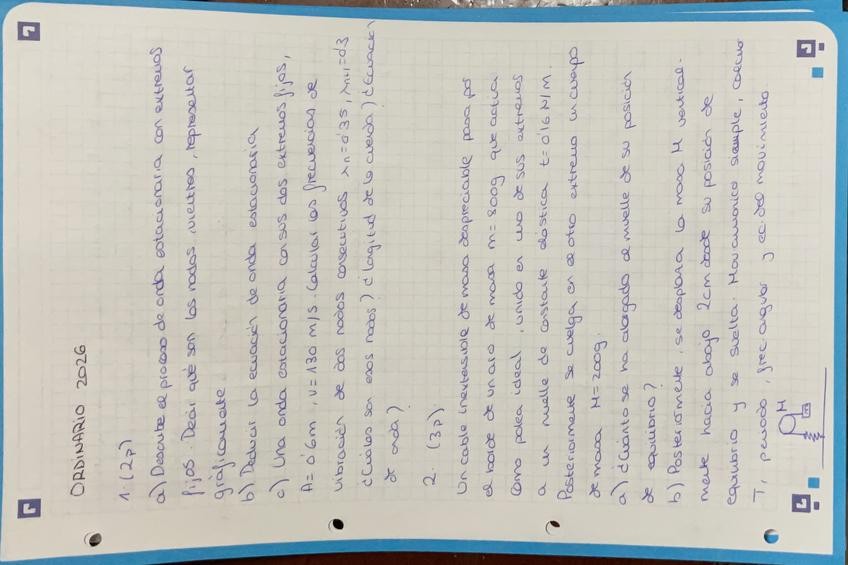 ORDINARIO 2026
1. (2p)
a) Describe el proceso de onda estacionaria con extremos
fijos. Decir qué son los nodos, vientres, representar
gráficamente.
b) Deducir la ecuación de onda estacionaria
c) Una onda estacionaria con sus dos extremos fijos,
A=0'6m, v=130 m/s. Calcular las frecuencias de
vibración de dos nodos consecutivos λn=0'35, λn+1=0'3
¿Cuáles son esos nodos? ¿Longitud de la cuerda? ¿Ecuación
de onda?
2. (3p)
Un cable inextensible de masa despreciable pasa por
el borde de un aro de masa m=800g que actúa
como polea ideal, unido en uno de sus extremos
a un muelle de constante elástica t=0'16 N/M.
Posteriormente se cuelga en el otro extremo un cuerpo
de masa M=200g.
a) ¿Cuánto se ha alargado el muelle de su posición
de equilibrio?
b) Posteriormente, se desplaza la masa M vertical-
mente hacia abajo 2cm desde su posición de
equilibrio y se suelta. Mov armónico simple, calcular
T, periodo, frec angular y ec del movimiento
M
m